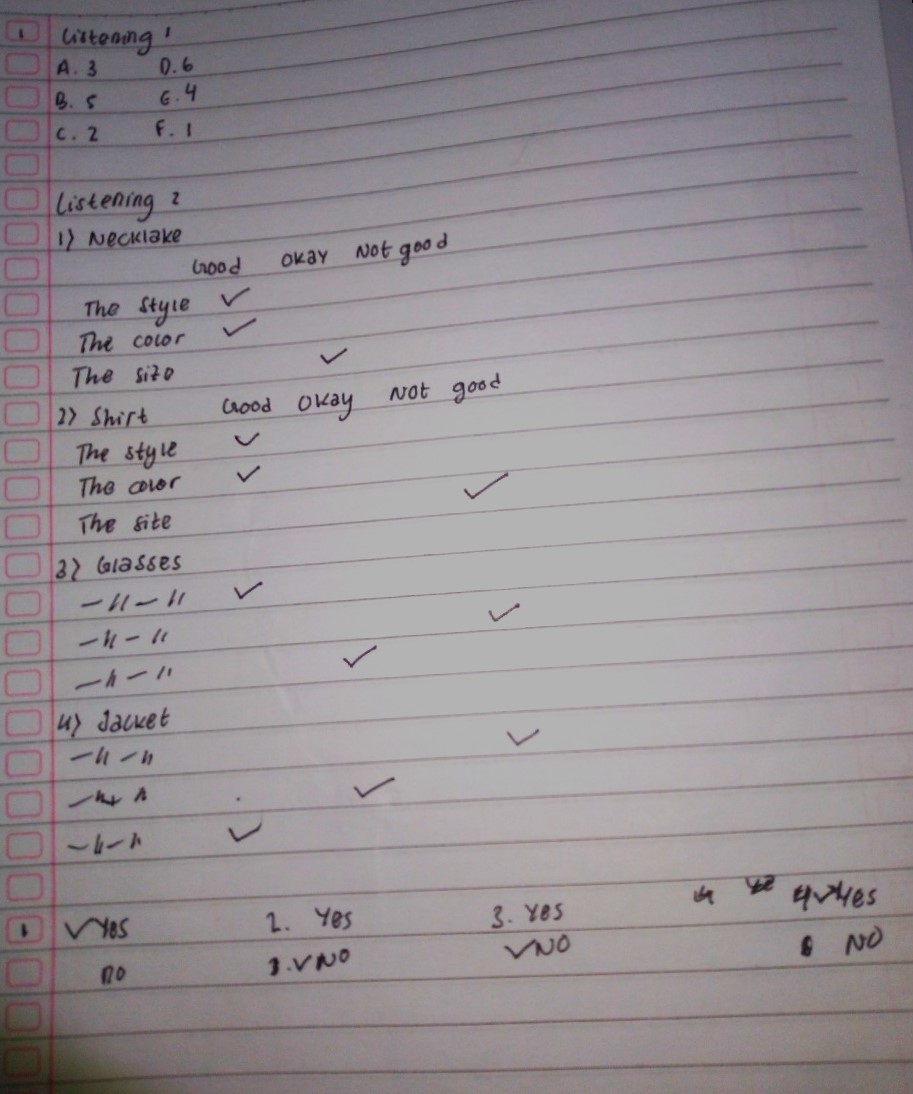 1 Listening 1
A. 3 D. 6
B. 5 E. 4
C. 2 F. 1
Listening 2
1) Necklake
Good okay Not good
The style ✓
The color ✓
The size ✓
2) Shirt Good okay Not good
The style ✓
The color ✓
The size ✓
3) Glasses
–〃–〃 ✓
–〃–〃 ✓
–〃–〃 ✓
4) Jacket
–〃–〃 ✓
–〃–〃 ✓
–〃–〃 ✓
✓ Yes 2. Yes 3. Yes 4 ✓ Yes
no ✓ NO ✓ NO NO